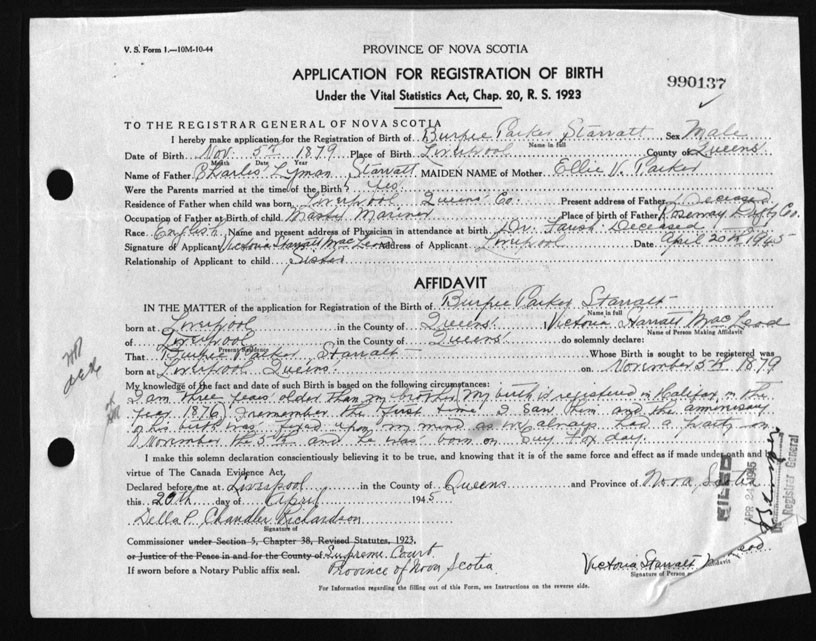 V. S. Form 1.—10M-10-44
PROVINCE OF NOVA SCOTIA
APPLICATION FOR REGISTRATION OF BIRTH
990137
Under the Vital Statistics Act, Chap. 20, R. S. 1923
TO THE REGISTRAR GENERAL OF NOVA SCOTIA
I hereby make application for the Registration of Birth of Burpee Parker Starratt Sex Male
Name in full
Date of Birth Nov. 5th 1879 Place of Birth Liverpool County of Queens
Month Day Year
Name of Father Charles Lyman Starratt MAIDEN NAME of Mother Ellie V. Parker
Were the Parents married at the time of the Birth? Yes
Residence of Father when child was born, Liverpool Queens Co. Present address of Father Deceased
Occupation of Father at Birth of child Master Mariner Place of birth of Father Roseway Co.
Race English Name and present address of Physician in attendance at birth Dr. Farish Deceased
Signature of Applicant Victoria Starratt MacLeod Address of Applicant Liverpool Date April 20th 1945
Relationship of Applicant to child Sister
AFFIDAVIT
IN THE MATTER of the application for Registration of the Birth of Burpee Parker Starratt
Name in full
born at Liverpool in the County of Queens I, Victoria Starratt MacLeod
Name of Person Making Affidavit
of Liverpool in the County of Queens do solemnly declare:
Present Residence
That Burpee Parker Starratt Whose Birth is sought to be registered was
born at Liverpool Queens on November 5th 1879
My knowledge of the fact and date of such Birth is based on the following circumstances:
I am three years older than my brother (My birth is registered in Halifax in the
year 1876) I remember the first time I saw him and the anniversary
of his birth was fixed upon my mind as we always had a party on
November the 5th and he was born on Guy Fox day.
I make this solemn declaration conscientiously believing it to be true, and knowing that it is of the same force and effect as if made under oath and
virtue of The Canada Evidence Act,
Declared before me at Liverpool in the County of Queens and Province of Nova Scotia
this 20th day of April 1945
Della P. Chandler Richardson
Signature of
Commissioner under Section 5, Chapter 38, Revised Statutes, 1923,
or Justice of the Peace in and for the County of Supreme Court
If sworn before a Notary Public affix seal. Province of Nova Scotia
Victoria Starratt
Signature of Person Affidavit
For Information regarding the filling out of this Form, see Instructions on the reverse side.
FILED
APR 24 1945
Registrar General